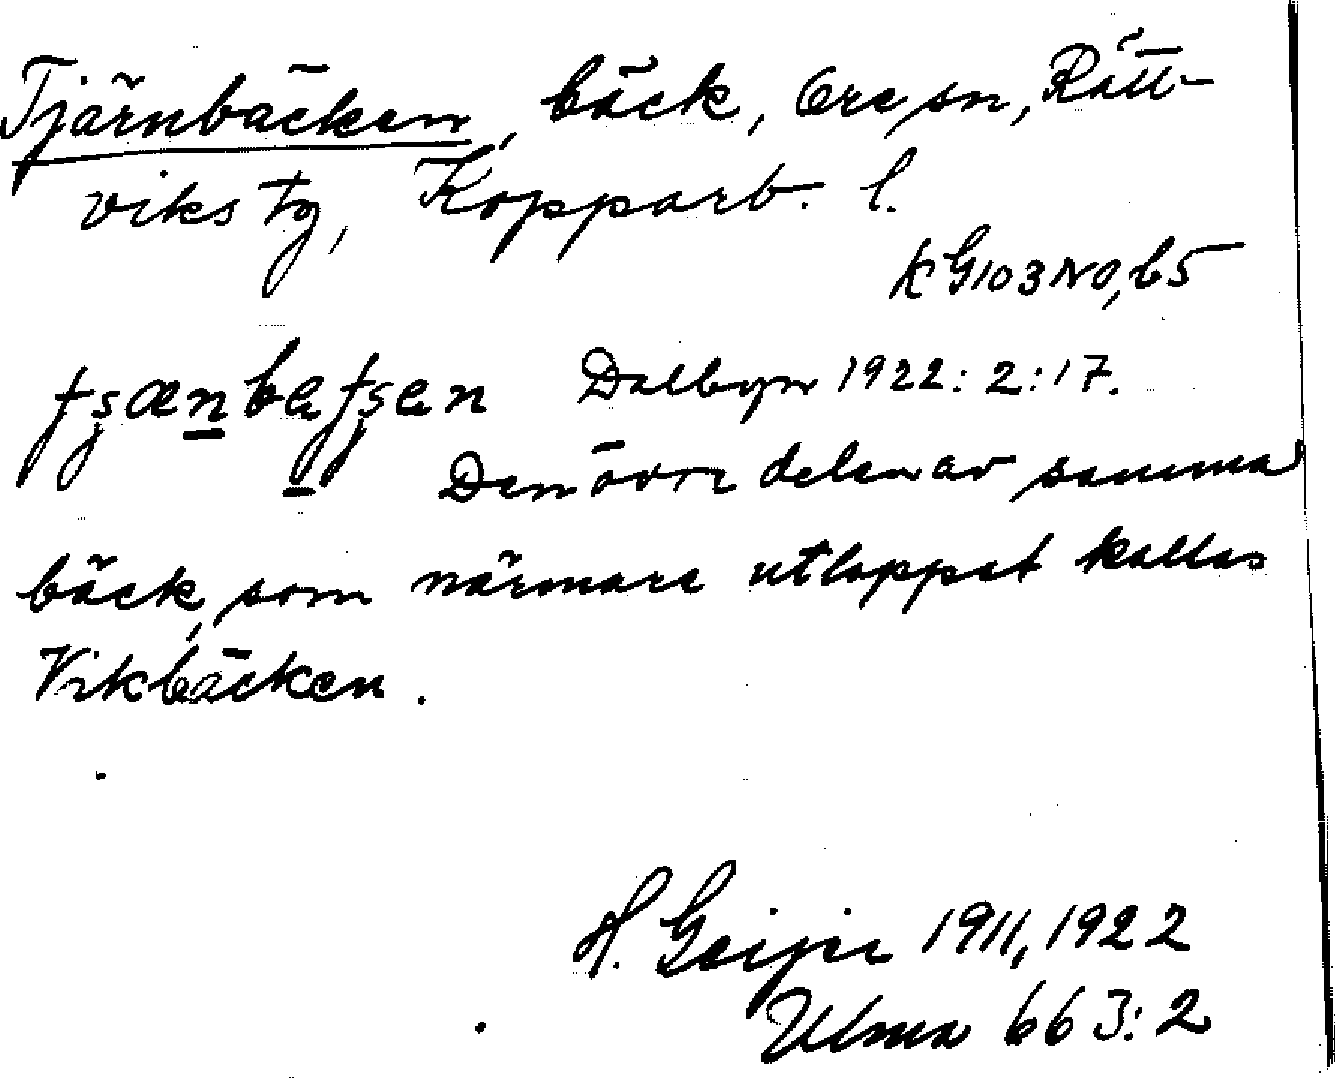 Tjärnbäcken, bäck, Ore sn, Rätt-
viks tg, Kopparb. l.
KG103NO, b5
Dalbyn 1922: 2:17.
Den övre delen av samma
bäck, som närmare utloppet kallas
Vikbäcken.
H. Geijer 1911, 1922
Ulma 663:2